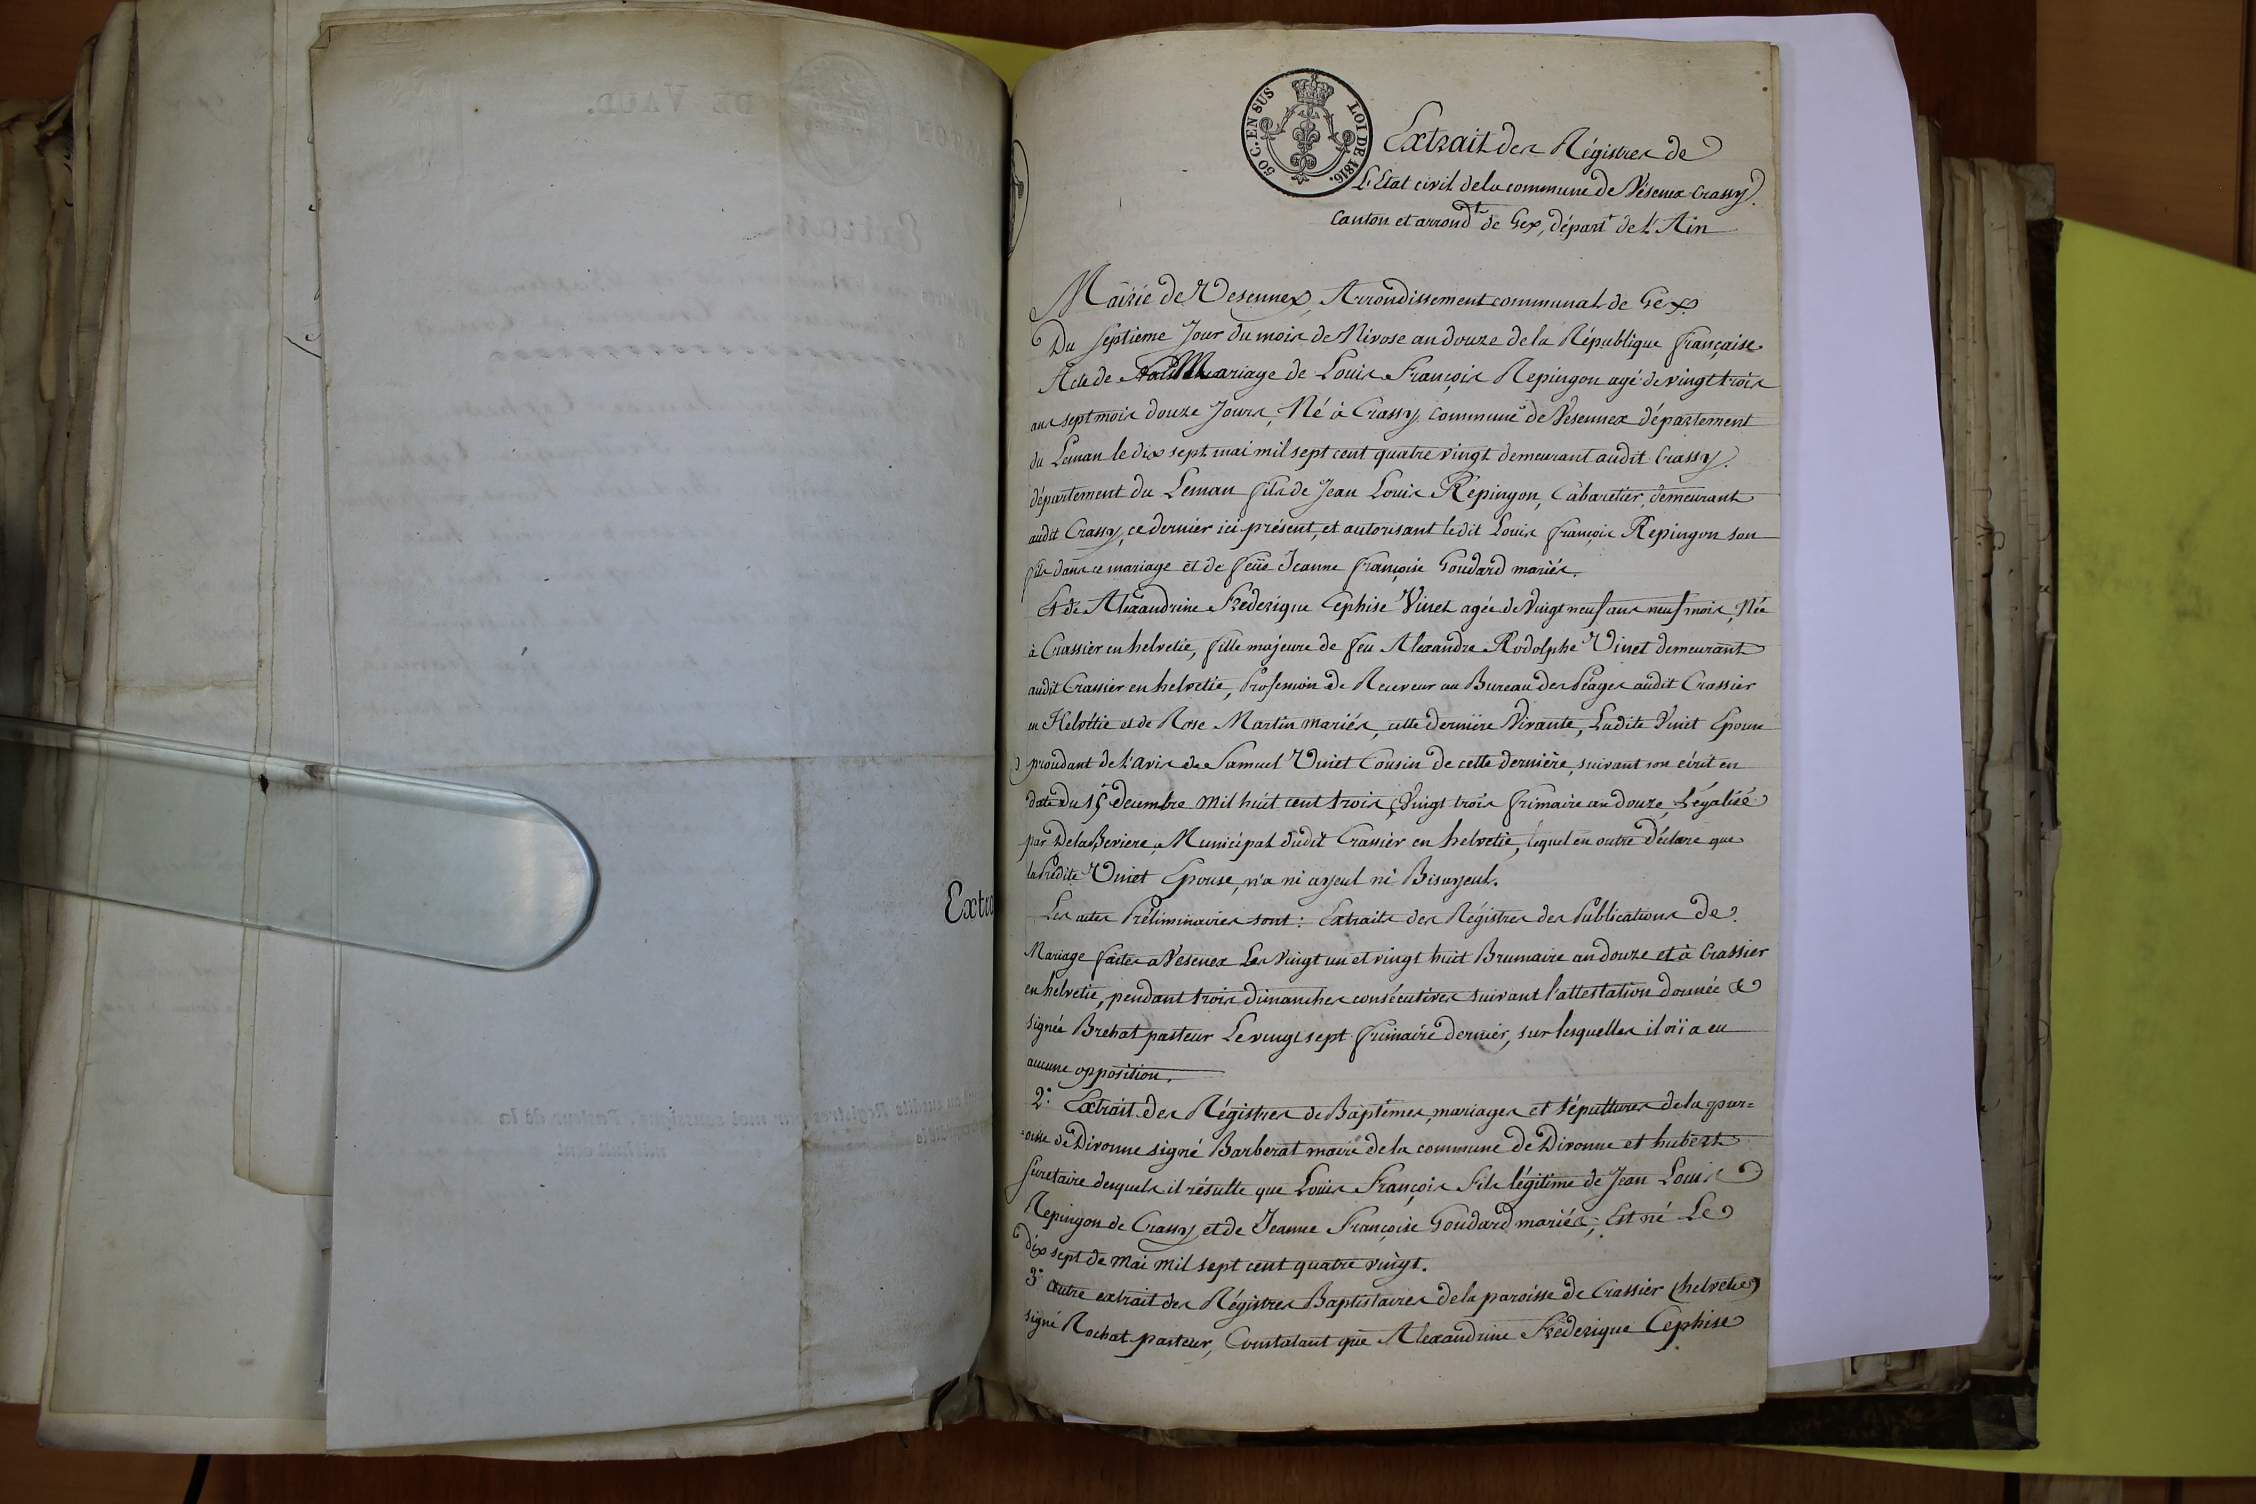 DE VAUD.
Extra
50 C. EN SUS
LOI DE 1816.
Extrait des Régistres de
L'Etat civil de la commune de Vésenex Crassy.
Canton et arrond.t de Gex, départ.t de L'Ain
Mairie de Vesennex, Arrondissement communal de Gex.
Du septieme Jour du mois de Nivose an douze de la République française
Acte de Mariage de Louis François Repingon agé de vingt trois
ans sept mois douze Jours, Né à Crassy, commune de Vesennex département
du Leman le dix sept mai mil sept cent quatre vingt demeurant audit Crassy.
département du Leman fils de Jean Louis Repingon, Cabaretier, demeurant
audit Crassy, ce dernier ici présent, et autorisant ledit Louis françois Repingon son
fils dans ce mariage et de feüe Jeanne françoise Goudard mariés.
Et de Alexandrine Frederique Cephise Vinet agée de Vingt neuf ans neuf mois, Née
à Crassier en helvetie, fille majeure de feu Alexandre Rodolphe Vinet demeurant
audit Crassier en helvetie, Profession de Receveur au Bureau des Péages audit Crassier
en Helvétie et de Rose Martin mariés, cette dernière Vivante, Ladite Vinet Epouse
proudant de L'avis de Samuel Vinet Cousin de cette dernière, suivant son écrit en
date du 15 décembre mil huit cent trois, Vingt trois frimaire an douze, Légalisé
par Municipal dudit Crassier en helvetie, lequel en outre Déclare que
la Prédite Vinet Epouse, n'a ni ayeul ni Bisayeul.
Les actes Préliminaires sont: Extraits des Régistres des Publications de
Mariage faites a Vesenex Les Vingt un et vingt huit Brumaire an douze et à Crassier
en helvetie, pendant trois dimanches consécutives suivant l'attestation donnée &
signée pasteur Le vingt sept frimaire dernier, sur lesquelles il n'i a eu
aucune opposition.
2.° Extrait des Régistres de Baptêmes, mariages et sépultures de la par=
=oisse de Divonne signé Barberat maire de la commune de Divonne et hubert
Secretaire desquels il résulte que Louis François Fils légitime de Jean Louis
Repingon de Crassy et de Jeanne Françoise Goudard mariés, Est né Le
dix sept de mai mil sept cent quatre vingt.
3.° autre extrait des Régistres Baptistaires de la paroisse de Crassier (helvetie)
signé Rochat pasteur, Constatant que Alexandrine Frederique Cephise